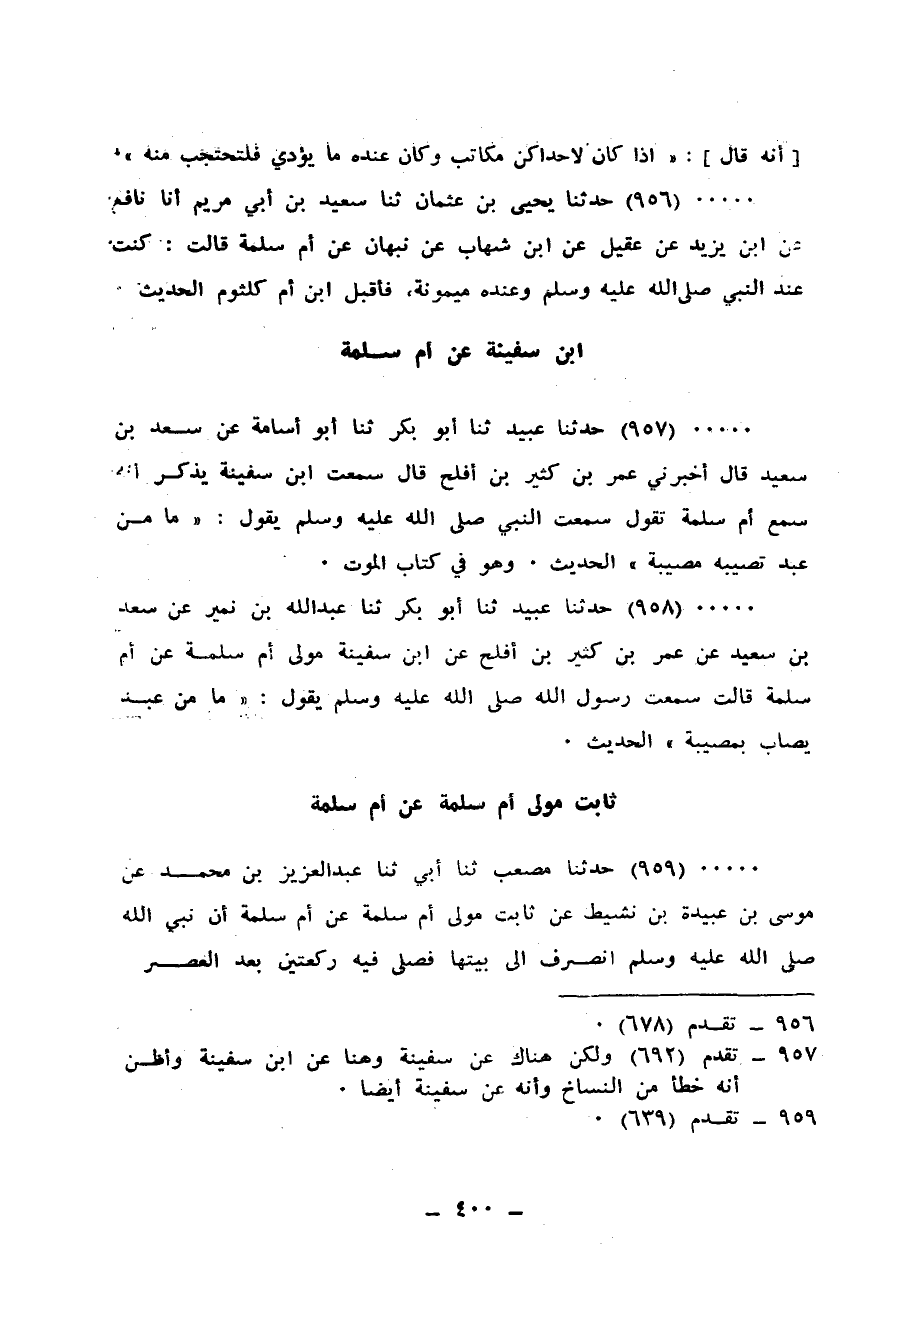 [ أنه قال ] : « اذا كان لاحداكن مكاتب وكان عنده ما يؤدي فلتحتجب منه » ٠
٠٠٠٠٠ (٩٥٦) حدثنا يحيى بن عثمان ثنا سعيد بن أبي مريم أنا نافع
عن ابن يزيد عن عقيل عن ابن شهاب عن نبهان عن أم سلمة قالت : كنت
عند النبي صلى الله عليه وسلم وعنده ميمونة، فأقبل ابن أم كلثوم الحديث ٠
ابن سفينة عن أم سلمة
٠٠٠٠٠ (٩٥٧) حدثنا عبيد ثنا أبو بكر ثنا أبو أسامة عن سعد بن
سعيد قال أخبرني عمر بن كثير بن أفلح قال سمعت ابن سفينة يذكر أنه
سمع أم سلمة تقول سمعت النبي صلى الله عليه وسلم يقول : « ما من
عبد تصيبه مصيبة » الحديث ٠ وهو في كتاب الموت ٠
٠٠٠٠٠ (٩٥٨) حدثنا عبيد ثنا أبو بكر ثنا عبدالله بن نمير عن سعد
بن سعيد عن عمر بن كثير بن أفلح عن ابن سفينة مولى أم سلمة عن أم
سلمة قالت سمعت رسول الله صلى الله عليه وسلم يقول : « ما من عبد
يصاب بمصيبة » الحديث ٠
ثابت مولى أم سلمة عن أم سلمة
٠٠٠٠٠ (٩٥٩) حدثنا مصعب ثنا أبي ثنا عبدالعزيز بن محمد عن
موسى بن عبيدة بن نشيط عن ثابت مولى أم سلمة عن أم سلمة أن نبي الله
صلى الله عليه وسلم انصرف الى بيتها فصلى فيه ركعتين بعد العصر
٩٥٦ ـ تقدم (٦٧٨) ٠
٩٥٧ ـ تقدم (٦٩٢) ولكن هناك عن سفينة وهنا عن ابن سفينة وأظن
أنه خطأ من النساخ وأنه عن سفينة أيضا ٠
٩٥٩ ـ تقدم (٦٣٩) ٠
ـ ٤٠٠ ـ